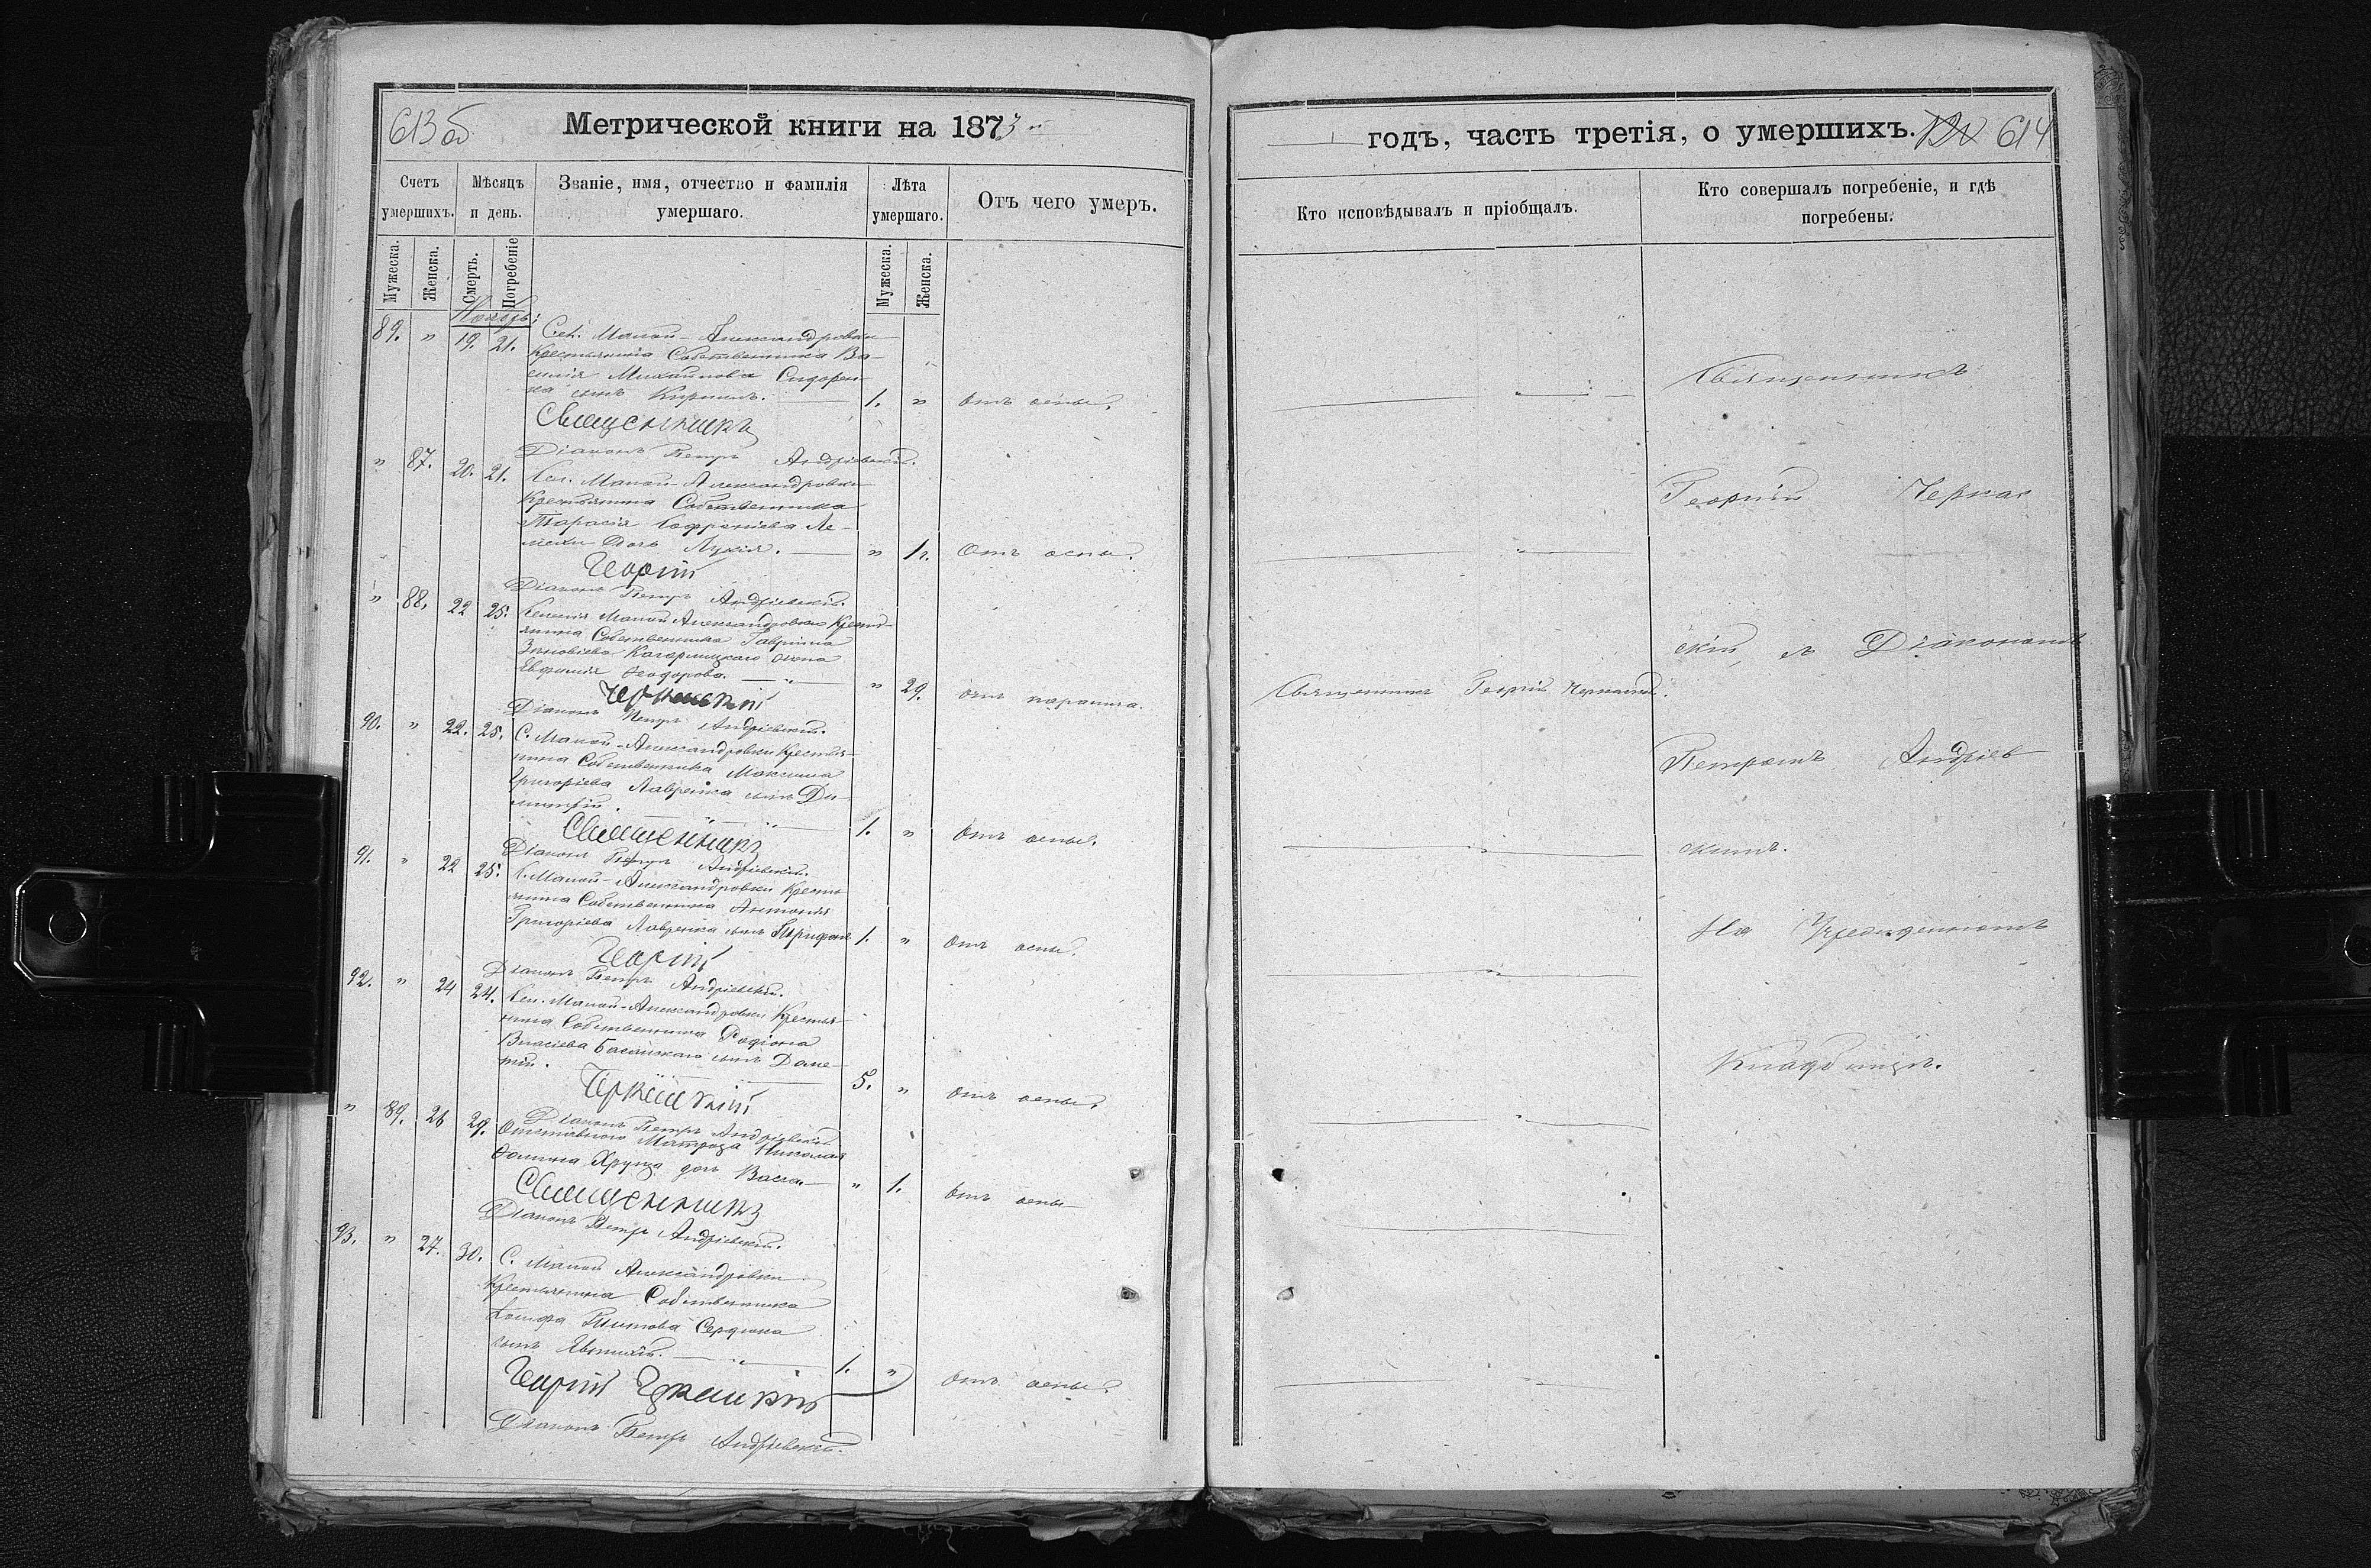 613об
Метрической книги на 1873 й
Счетъ умершихъ.
Мѣсяцъ и день.
Званіе, имя, отчество и фамилія умершаго.
Лѣта умершаго.
Отъ чего умеръ.
Мужеска.
Женска.
Смерть.
Погребеніе
Мужеска.
Женска.
Ноябрь:
89. " 19. 21. Сел. Малой-Александровки
Крестьянина Собственника Ва-
силія Михайлова Сидорен-
ка сынъ Кириллъ. 1. " Отъ оспы.
Священникъ
Діаконъ Петръ Андріевскій.
" 87. 20. 21. Сел. Малой-Александровки
Крестьянина Собственника
Тарасія
дочь Лукія. " 1 г. Отъ оспы.
Георгій
Діаконъ Петръ Андріевскій.
" 88. 22 25. Селенія Малой Александровки Кресть-
янина Собственника Гавріила
Зиновіева Кагарлицкаго жена
Евфимія Ѳеодорова. " 29.
Черкасскій
Діаконъ Петръ Андріевскій.
90. " 22. 25. С. Малой-Александровки Крестья-
нина Собственника Максима
Григоріева Лаврейка сынъ Ди-
митрій. 1. " Отъ оспы.
Священникъ
Діаконъ Петръ Андріевскій.
91. " 22 25. С. Малой-Александровки Кресть
янина Собственника Антонія
Григоріева Лаврейка сынъ Трифонъ 1. " Отъ оспы.
Георгій
Діаконъ Петръ Андріевскій.
92. " 24 24. Сел. Малой-Александровки Крестья-
нина Собственника Родіона
Власіева сынъ Доме-
тій. 5. " Отъ оспы.
Черкасскій
Діаконъ Петръ Андріевскій
" 89. 26 29. Отставного Матроза Николая
Ѳомина дочь Васса " 1. Отъ оспы
Священникъ
Діаконъ Петръ Андріевскій.
93. " 27. 30. С. Малой Александровки
Крестьянина Собственника
Іосифа Сердюка
сынъ Евтихій. 1. " Отъ оспы.
Георгій Черкасскій
Діаконъ Петръ Андріевскій.
годъ, часть третія, о умершихъ. 614
Кто исповѣдывалъ и пріобщалъ.
Кто совершалъ погребеніе, и гдѣ погребены.
Священникъ Георгій Черкасскій.
Священникъ
Георгій Черкас
скій, съ Діакономъ
Петромъ Андріев
скимъ.
На Учрежденномъ
Кладбищѣ.